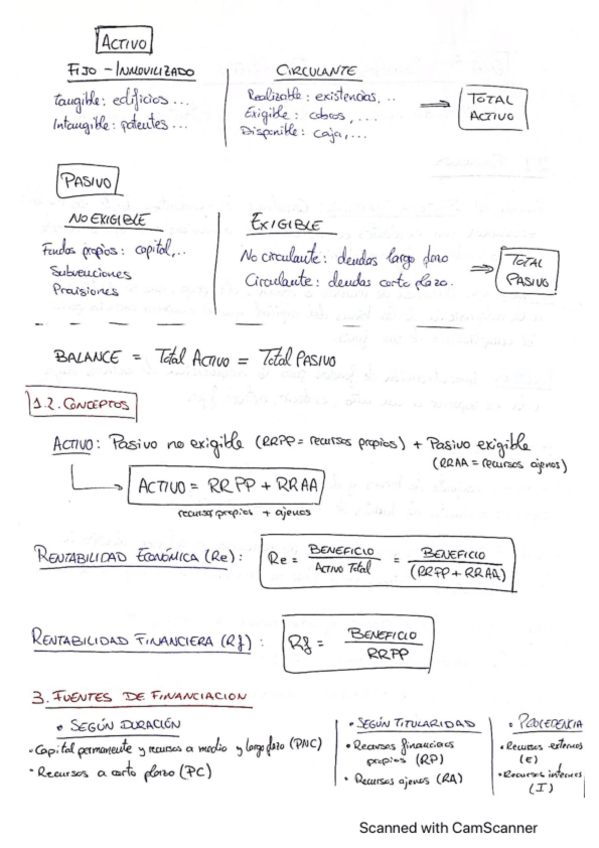 ACTIVO
FIJO - INMOVILIZADO
CIRCULANTE
Tangible: edificios ...
Intangible: patentes ...
Realizable: existencias, ..
Exigible: cobros, ...
Disponible: caja, ...
TOTAL
ACTIVO
PASIVO
NO EXIGIBLE
EXIGIBLE
Fondos propios: capital, ..
Subvenciones
Provisiones
No circulante: deudas largo plazo
Circulante: deudas corto plazo.
TOTAL
PASIVO
BALANCE = Total ACTIVO = Total PASIVO
1.2. CONCEPTOS
ACTIVO: Pasivo no exigible (RRPP = recursos propios) + Pasivo exigible
(RRAA = recursos ajenos)
ACTIVO = RRPP + RRAA
recursos propios + ajenos
RENTABILIDAD ECONÓMICA (Re): Re = BENEFICIO / ACTIVO Total = BENEFICIO / (RRPP + RRAA)
RENTABILIDAD FINANCIERA (Rf): Rf = BENEFICIO / RRPP
3. FUENTES DE FINANCIACION
• SEGÚN DURACIÓN
• Capital permanente y recursos a medio y largo plazo (PNC)
• Recursos a corto plazo (PC)
• SEGÚN TITULARIDAD
• Recursos financieros
propios (RP)
• Recursos ajenos (RA)
• PROCEDENCIA
• Recursos externos
(E)
• Recursos internos
(I)
Scanned with CamScanner